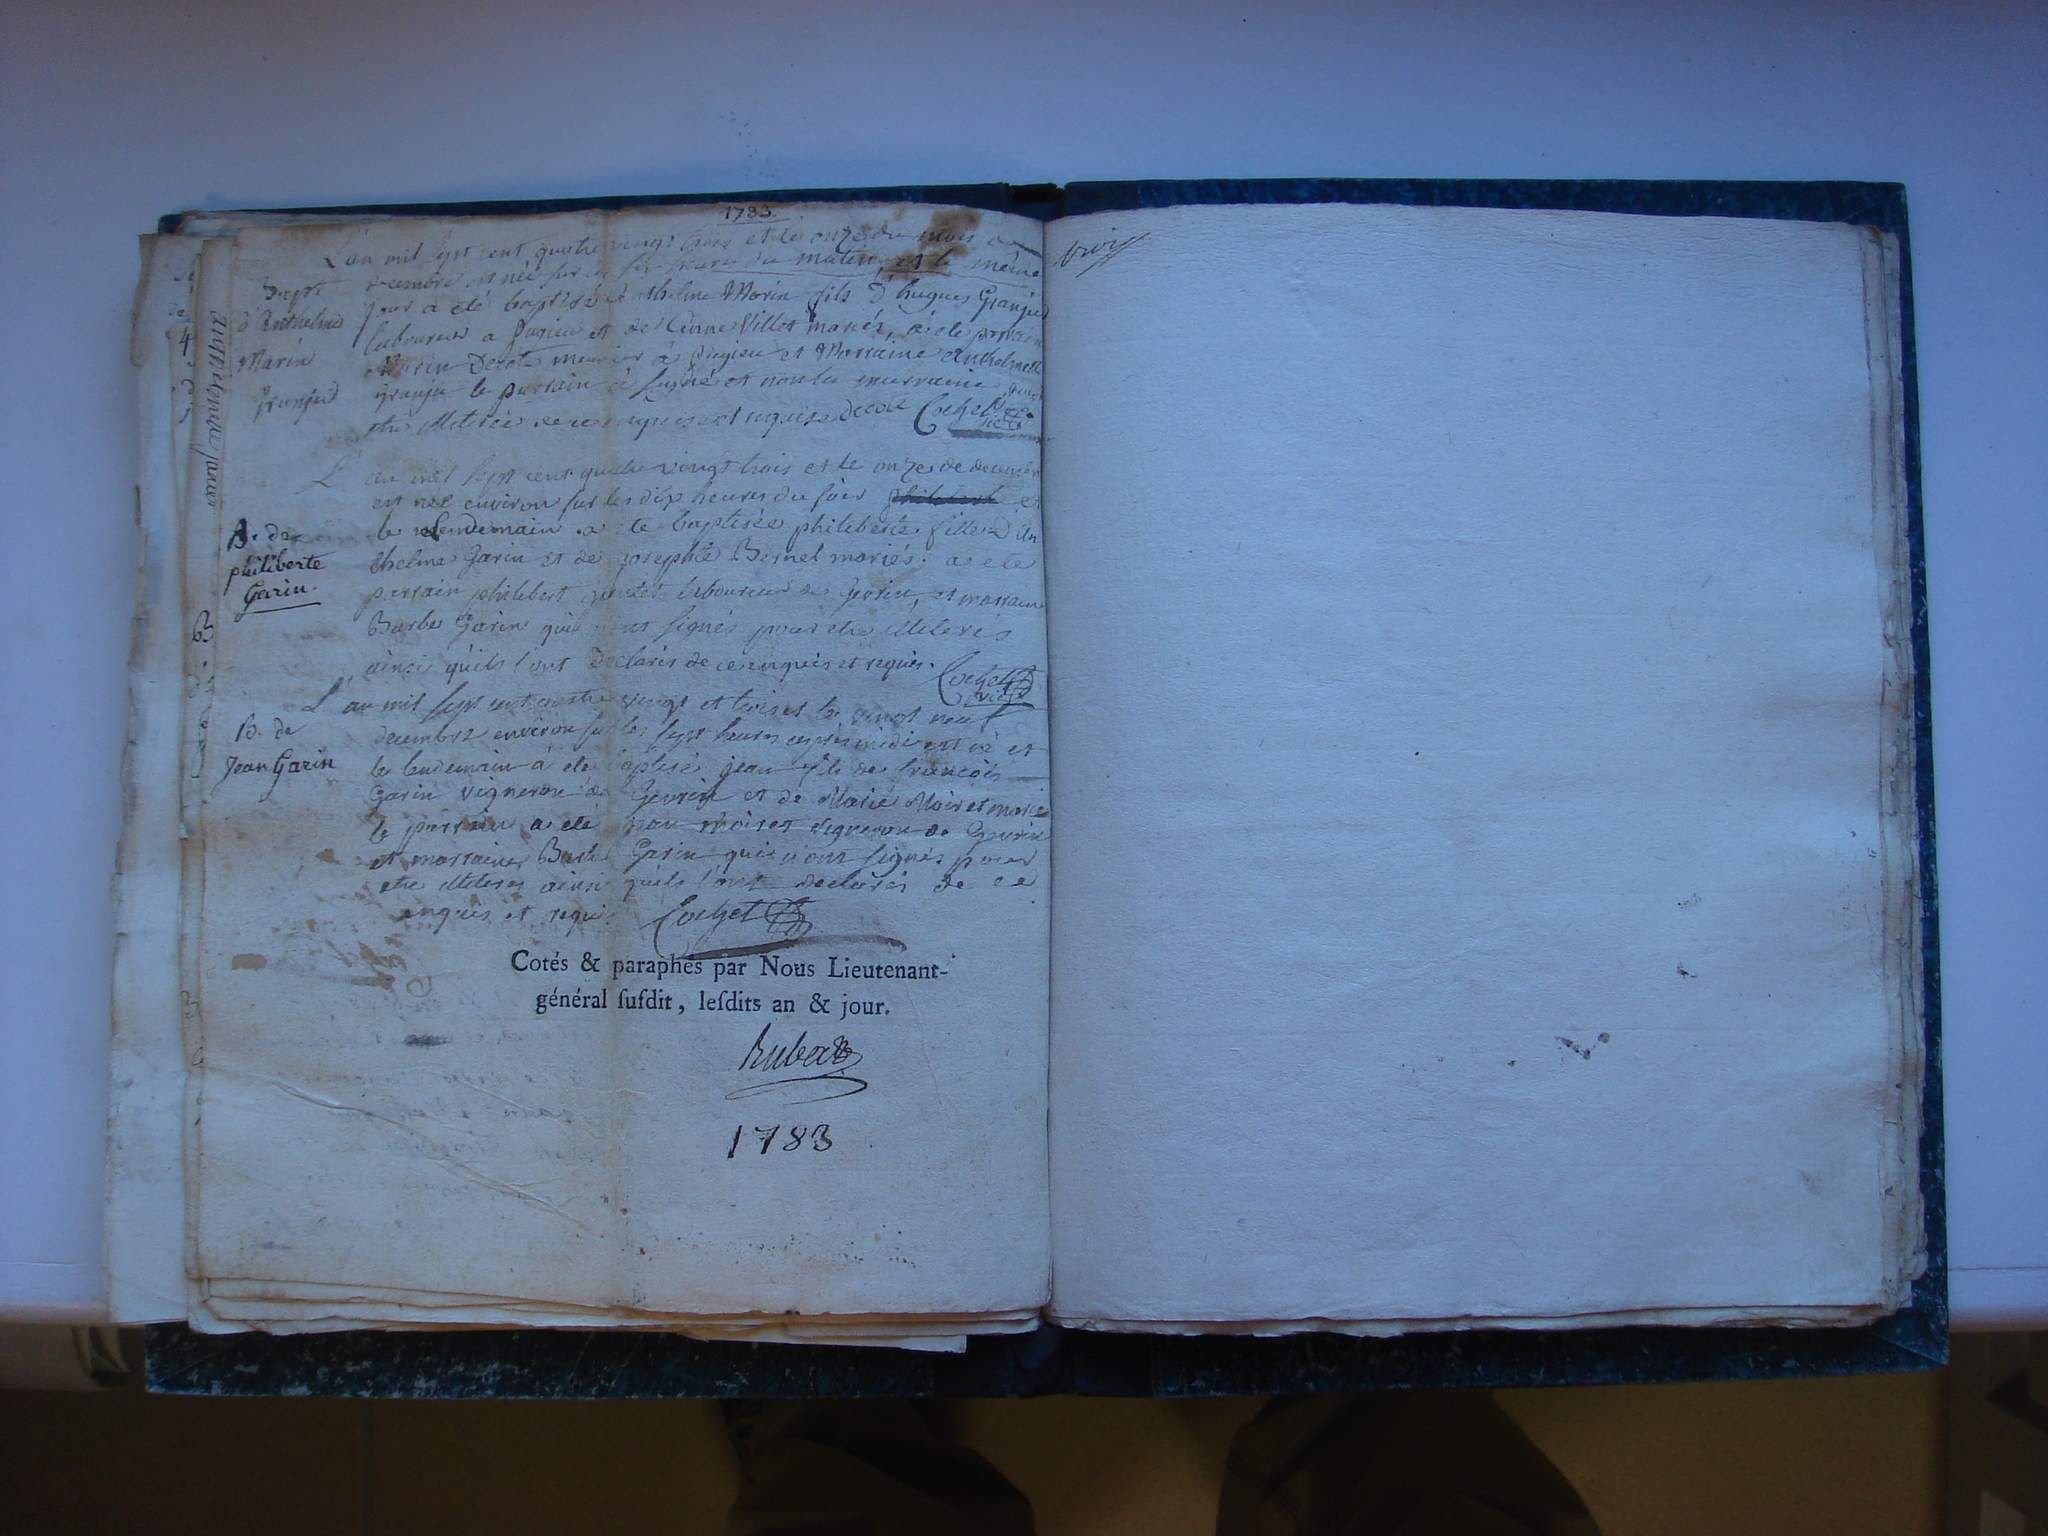 1783.
L'an mil sept cent quatre vingt trois et le onze du mois de
decembre est né sur les six heures du matin, et le même
jour a eté baptisé Anthelme Marin fils d'hugues Granjud
laboureur a Pugieu et de Villet mariés, a eté parrain
Marin meunier à Pugieu et Marraine Anthelmette
granju le parrain a signé et non la marraine pour
etre illiterée de ce enquise et requise Cochet vic.
Bapt.
d'Anthelme
Marin
Granjud
L'an mil sept cent quatre vingt trois et le onze de decembre
est née environ sur les dix heures du soir et
le lendemain a eté baptisée philiberte fille d'An
thelme Garin et de josephte Bernel mariés. a eté
parrain philibert laboureur de Gevrin, et marraine
Barbe Garin qui n'ont signés pour etre illiterés
ainsi qu'ils l'ont declarés de ce enquis et requis. Cochet
vic.
B. de
philiberte
Garin.
L'an mil sept cent quatre vingt et trois et le vingt neuf
decembre environ sur les sept heures après midi est né et
le lendemain à eté baptisé jean fils de françois
Garin vigneron de Gevrin et de Marie Moiret mariés
le parrain a eté jean Moiret vigneron de Gevrin
et marraine Barbe Garin qui n'ont signés pour
etre illiteres ainsi qu'ils l'ont declarés de ce
enquis et requis Cochet
B. de
Jean Garin
Cotés & paraphés par Nous Lieutenant-
général ſuſdit, leſdits an & jour.
Rubat
1783